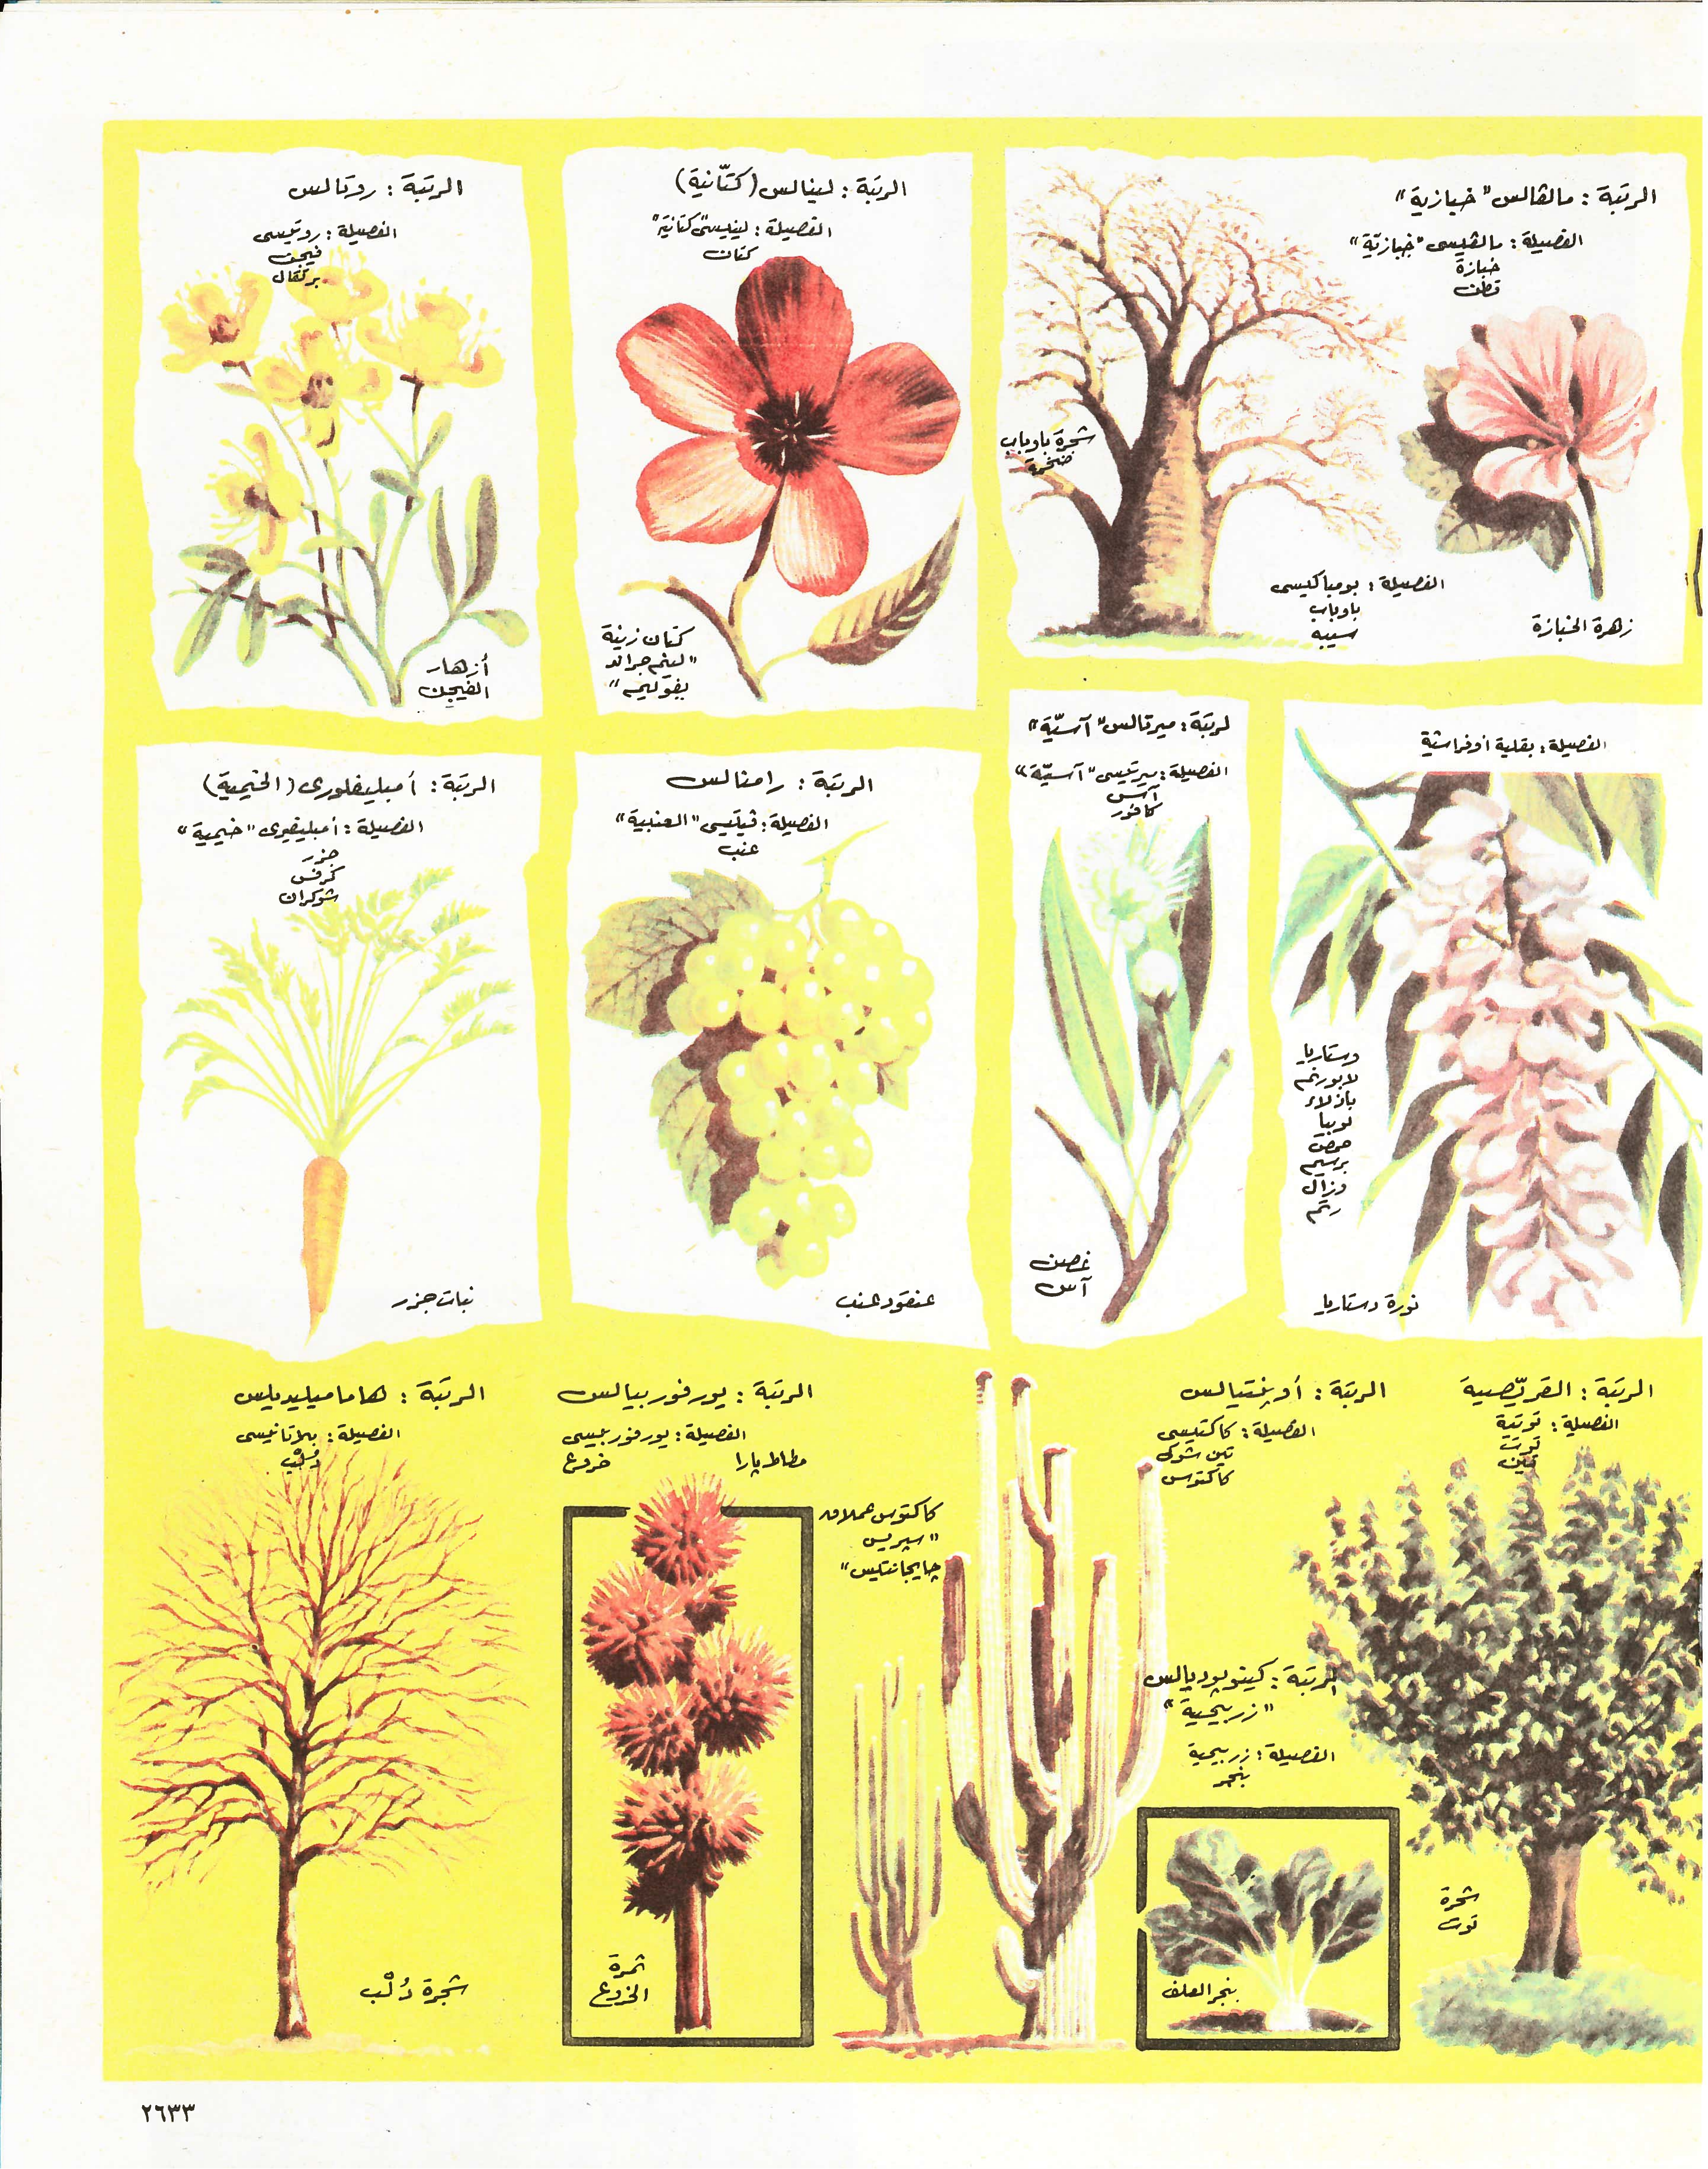 الرتبة : مالڤالس "خبازية"
الفصيلة : مالڤيسى "خبازيّة"
خبازة
قطن
شجرة باوباب
ضخمة
الفصيلة : بومباكيسى
باوباب
سيبه
زهرة الخبازة
الرتبة : لينالس (كتّانية)
الفصيلة : لينيسى "كتانية"
كتان
كتان زينة
"لينم جراند
يفوليم"
الرتبة : روتالس
الفصيلة : روتيسى
فيجن
برتقال
أزهار
الفيجن
الفصيلة : بقلية أوفراشية
وستاريا
لابورنم
بازلاء
لوبيا
حمص
برسيم
وزال
رتم
نورة وستاريا
لرتبة : ميرتالس "آسيّة"
الفصيلة : ميرتيسى "آسيّة"
آس
كافور
غصن
آس
الرتبة : رامنالس
الفصيلة : ڤيتيسى "العنبية"
عنب
عنقود عنب
الرتبة : أمبليفلورى (الخيمية)
الفصيلة : أمبليفرى "خيمية"
جزر
كرفس
شوكران
نبات جزر
الرتبة : القرّيصية
الفصيلة : توتية
توت
تين
شجرة
توت
الرتبة : أوپنتيالس
الفصيلة : كاكتيسى
تين شوكى
كاكتوس
كاكتوس عملاق
"سيريس
چايجانتيس"
الرتبة : كينوپوديالس
"زربيحية"
الفصيلة : زربيحية
بنجر
بنجر العلف
الرتبة : يورفوربيالس
الفصيلة : يورفوربيسى
مطاط پارا خروع
ثمرة
الخروع
الرتبة : هاماميليديلس
الفصيلة : پلاتانيسى
دُلْب
شجرة دُلْب
٢٦٣٣